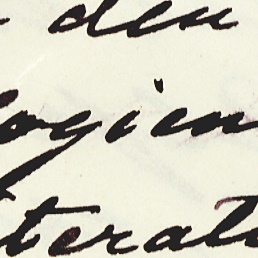 den
ogien
terat